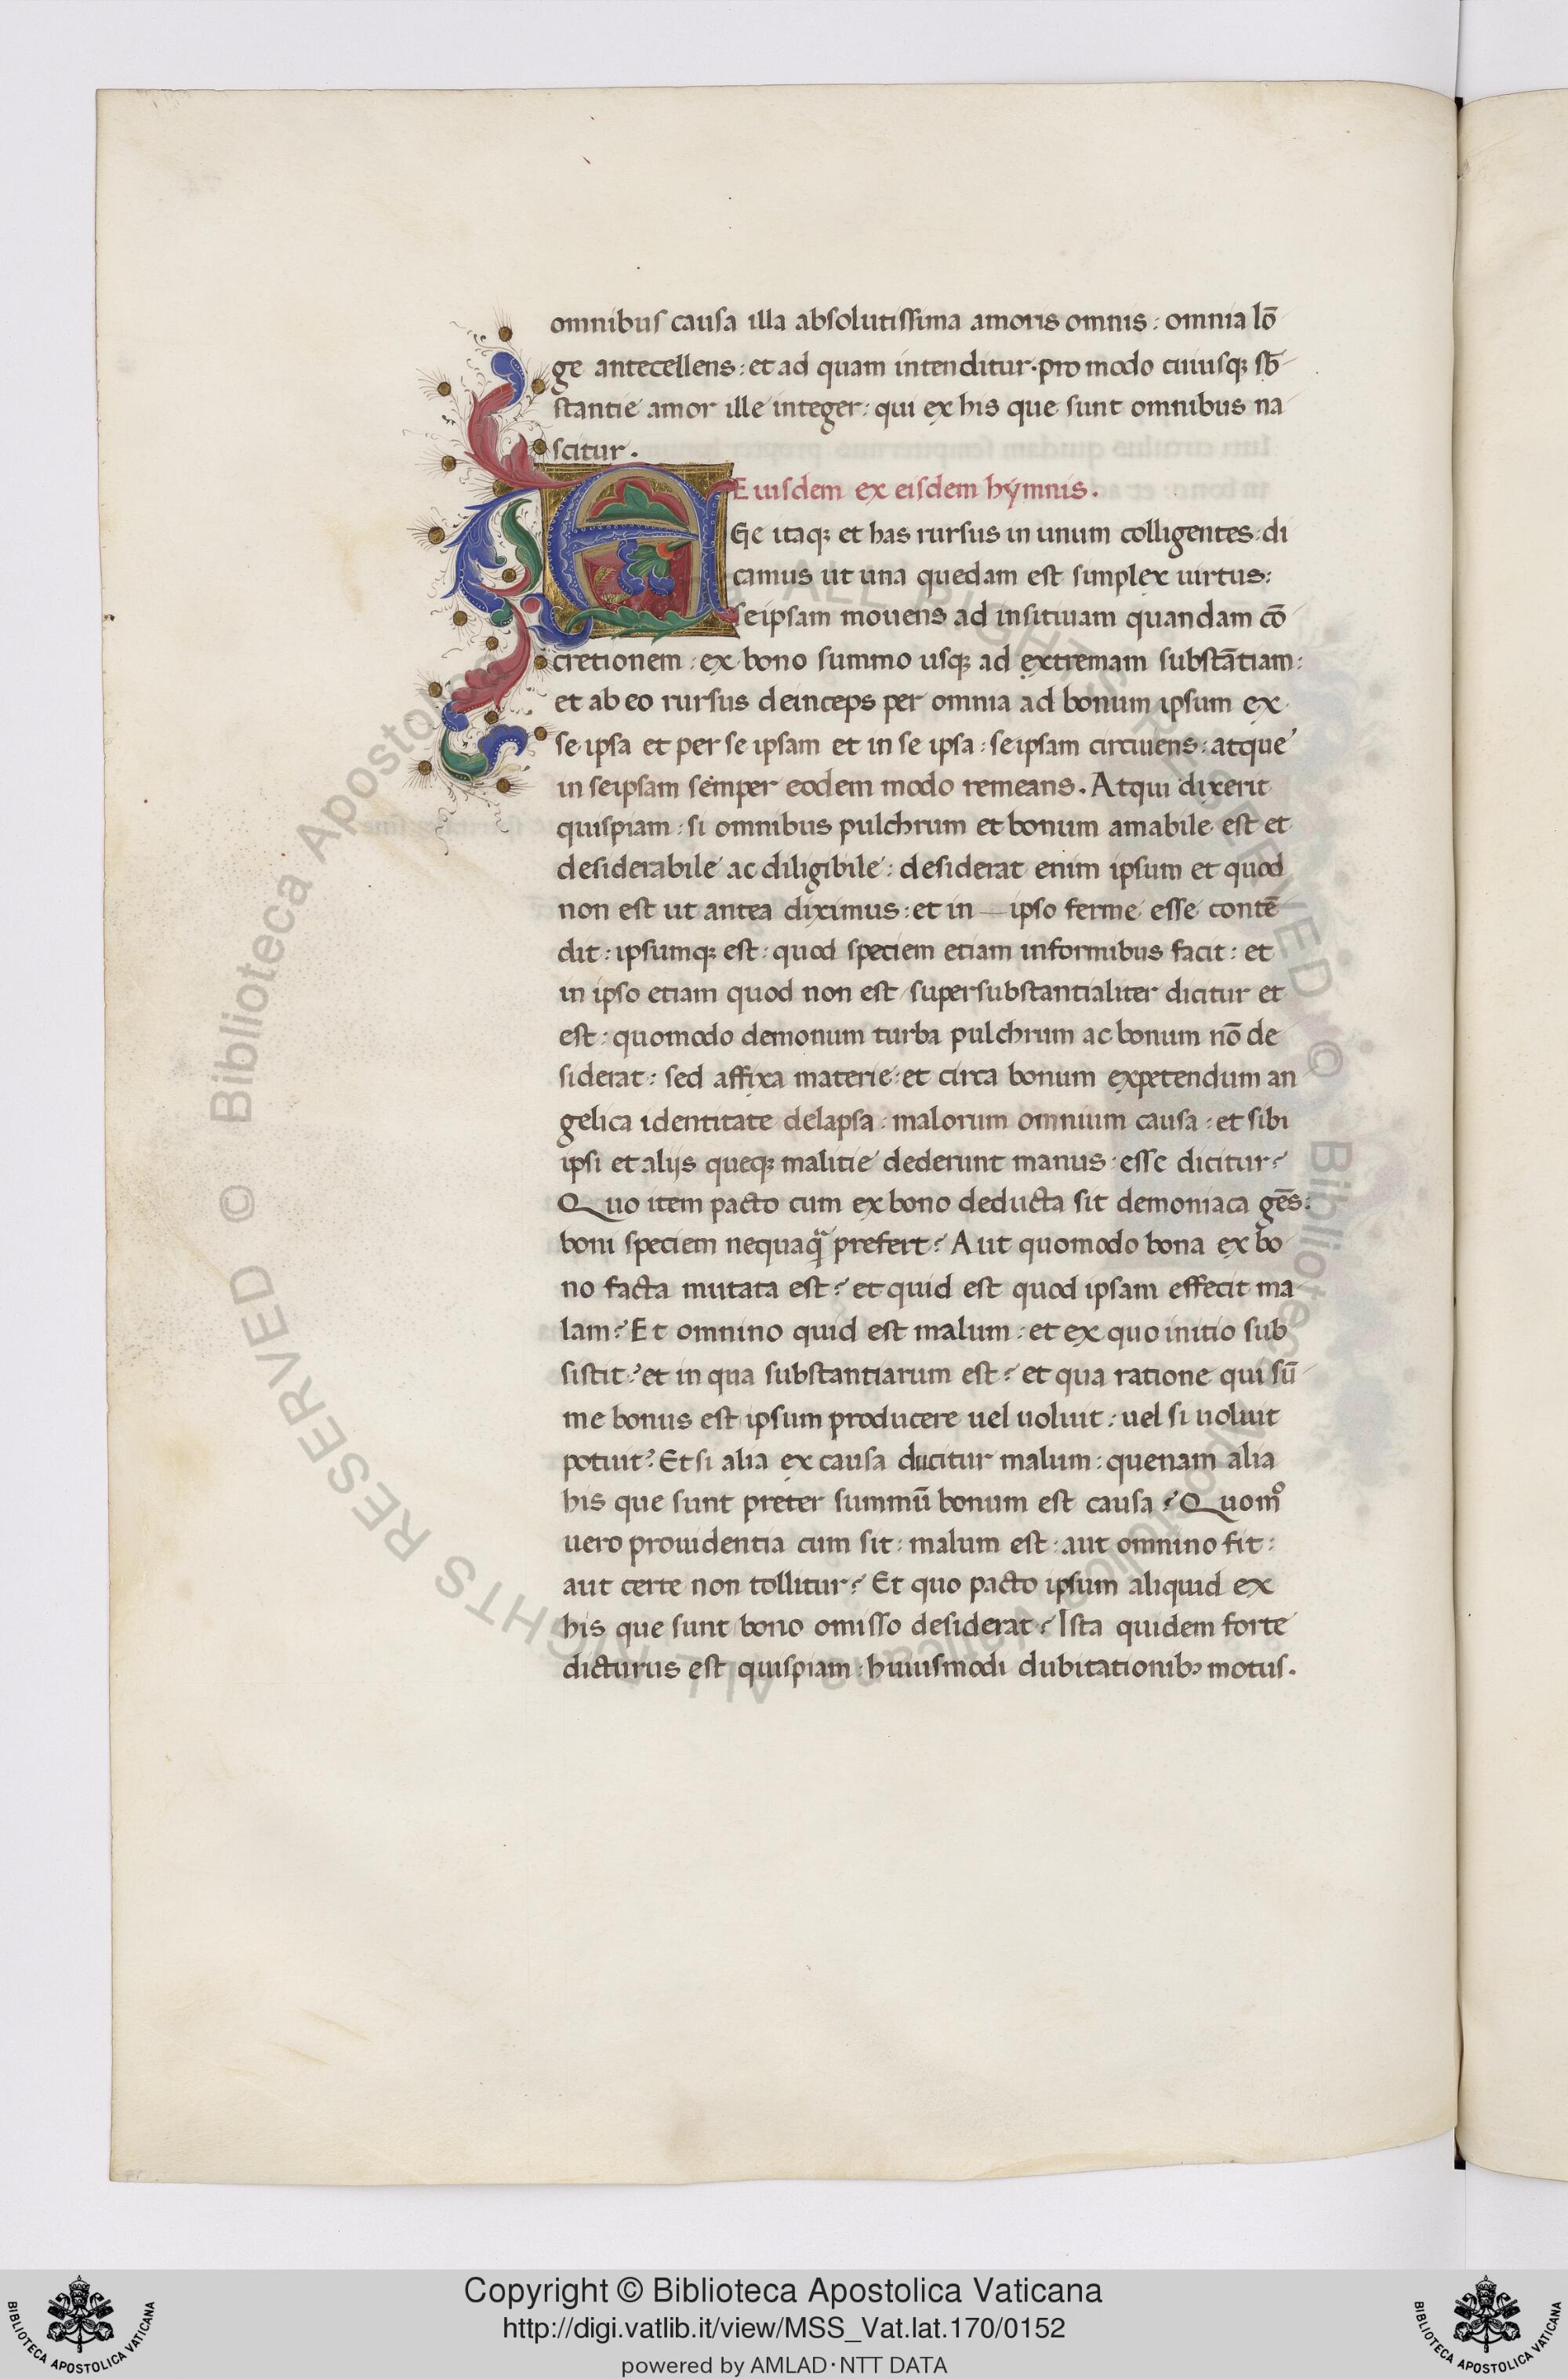 omnibus causa illa absolutissima amoris omnis: omnia lō
ge antecellens: et ad quam intenditur. pro modo cuiusq; sb̄
stantie amor ille integer: qui ex his que sunt omnibus na
scitur.
Euisdem ex eisdem hẏmnis.
AGe itaq; et has rursus in unum colligentes: di
camus ut una quedam est simplex uirtus:
seipsam mouens ad insitiuam quandam cō
cretionem: ex bono summo usq; ad extremam substātiam:
et ab eo rursus deinceps per omnia ad bonum ipsum ex
se ipsa et per se ipsam et in se ipsa: seipsam circiuens: atque
in seipsam semper eodem modo remeans. Atqui dixerit
quispiam: si omnibus pulchrum et bonum amabile est et
desiderabile ac diligibile: desiderat enim ipsum et quod
non est ut antea diximus: et in — ipso ferme esse contē
dit: ipsumq; est: quod speciem etiam informibus facit: et
in ipso etiam quod non est supersubstantialiter dicitur et
est: quomodo demonum turba pulchrum ac bonum nō de
siderat: sed affixa materie: et circa bonum expetendum an
gelica identitate delapsa: malorum omnium causa: et sibi
ipsi et alijs queq; malitie dederunt manus: esse dicitur?
Quo item pacto cum ex bono deducta sit demoniaca gēs:
boni speciem nequaq̃ prefert? Aut quomodo bona ex bo
no facta mutata est? et quid est quod ipsam effecit ma
lam? Et omnino quid est malum: et ex quo initio sub
sistit? et in qua substantiarum est? et qua ratione qui sū
me bonus est ipsum producere uel uoluit: uel si uoluit
potuit? Et si alia ex causa ducitur malum: quenam alia
his que sunt preter summū bonum est causa? Quomº
uero prouidentia cum sit: malum est: aut omnino fit:
aut certe non tollitur? Et quo pacto ipsum aliquid ex
his que sunt bono omisso desiderat? Ista quidem forte
dicturus est quispiam: huiusmodi dubitationibꝫ motus.
© Biblioteca Apostolica Vaticana ALL RIGHTS RESERVED © Biblioteca Apostolica Vaticana ALL RIGHTS RESERVED
Copyright © Biblioteca Apostolica Vaticana
http://digi.vatlib.it/view/MSS_Vat.lat.170/0152
powered by AMLAD·NTT DATA
BIBLIOTECA APOSTOLICA VATICANA
BIBLIOTECA APOSTOLICA VATICANA